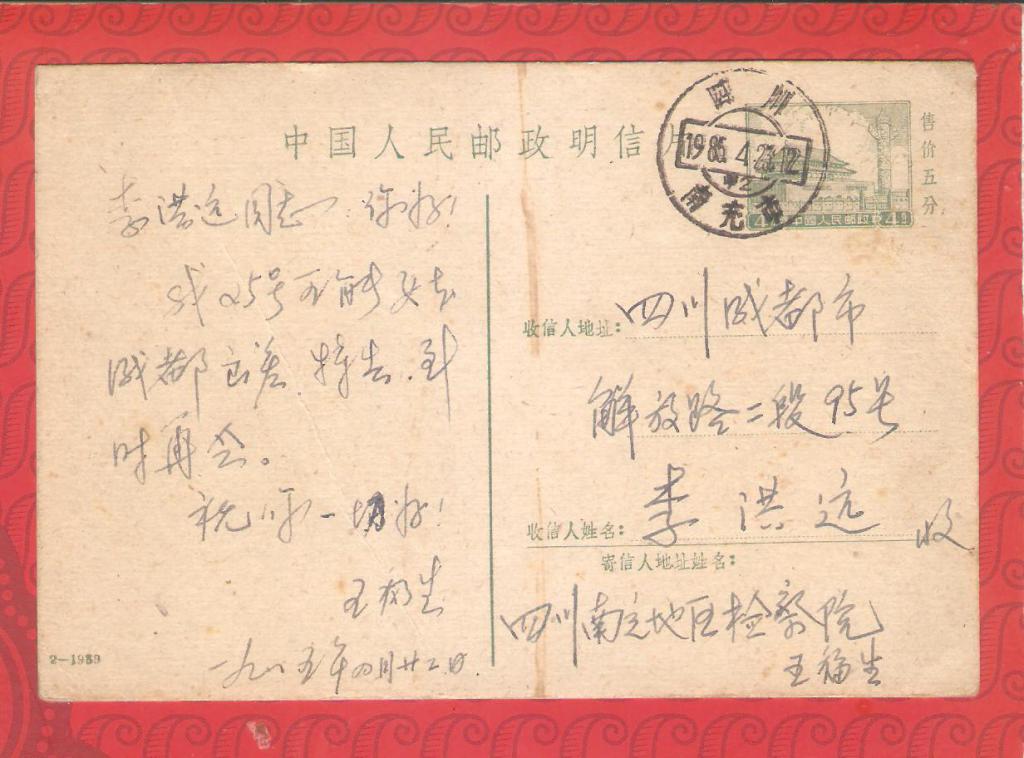 中国人民邮政明信片
四川
1985.4.23.12
南充市
售价五分
中國人民郵政
李洪远同志 你好!
我25号可能要去
成都出差 特告.到
时再会。
祝你一切好!
王福生
一九八五年四月廿二日
2—1959
收信人地址: 四川成都市
解放路二段95号
收信人姓名: 李洪远 收
寄信人地址姓名:
四川南充地区检察院
王福生